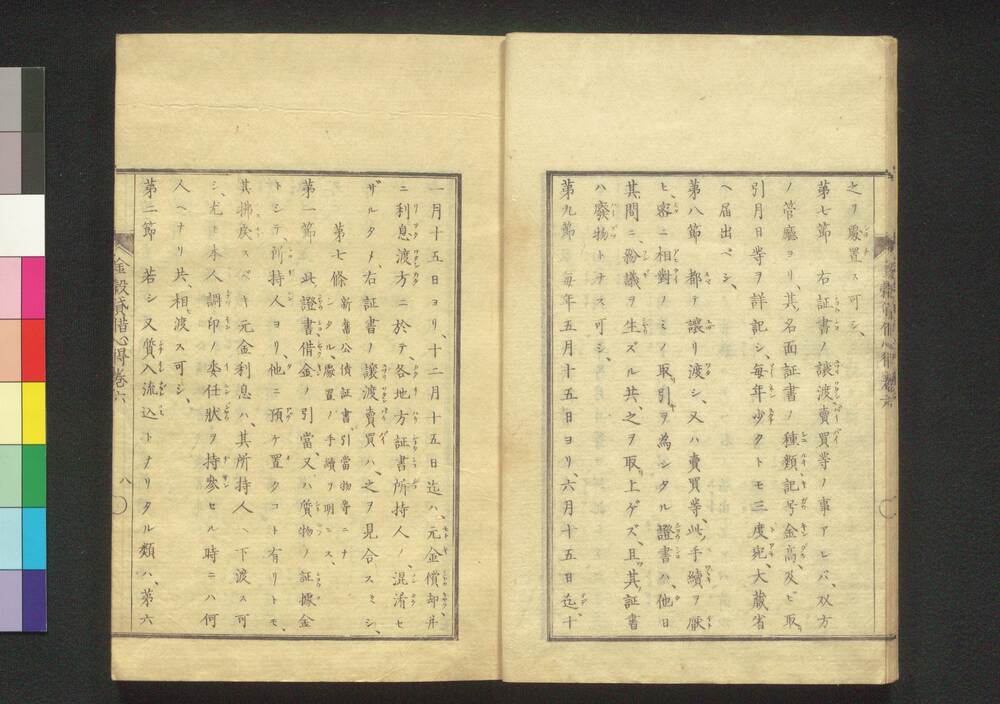 之ヲ處置ス可シ、
第七節 右証書ノ譲渡賣買等ノ事アレバ、双方
ノ管廳ヨリ、其名面証書ノ種類記号金高、及ビ取
引月日等ヲ詳記シ、毎年少クトモ三度宛大蔵省
ヘ届出ベシ、
第八節 都テ譲リ渡シ、又ハ賣買等、此手續ヲ厭
ヒ、密ニ相對ノミノ取引ヲ為シタル證書ハ、他日
其間ニ紛議ヲ生ズル共、之ヲ取上ゲズ、且其証書
ハ廢物トナス可シ、
第九節 毎年五月十五日ヨリ、六月十五日迄十
一月十五日ヨリ、十二月十五日迄ハ、元金償却并
ニ利息渡方ニ於テ、各地方証書所持人ノ混淆セ
ザルタメ、右証書ノ譲渡賣買ハ、之ヲ見合スベシ、
第七條 新舊公債証書引當物等ニナ
シタル、處置ノ手續ヲ明ニス、
第一節 此證書借金ノ引當、又ハ質物ノ証據金
トシテ、所持人ヨリ、他ニ預ケ置クコト有リトモ、
其拂戻スベキ元金利息ハ、其所持人ヘ下渡ス可
シ、尤モ本人調印ノ委任狀ヲ持參セル時ニハ何
人ヘナリ共、相渡ス可シ、
第二節 若シ又質入流込トナリタル類ハ、第六
金穀貸借心得卷六
八